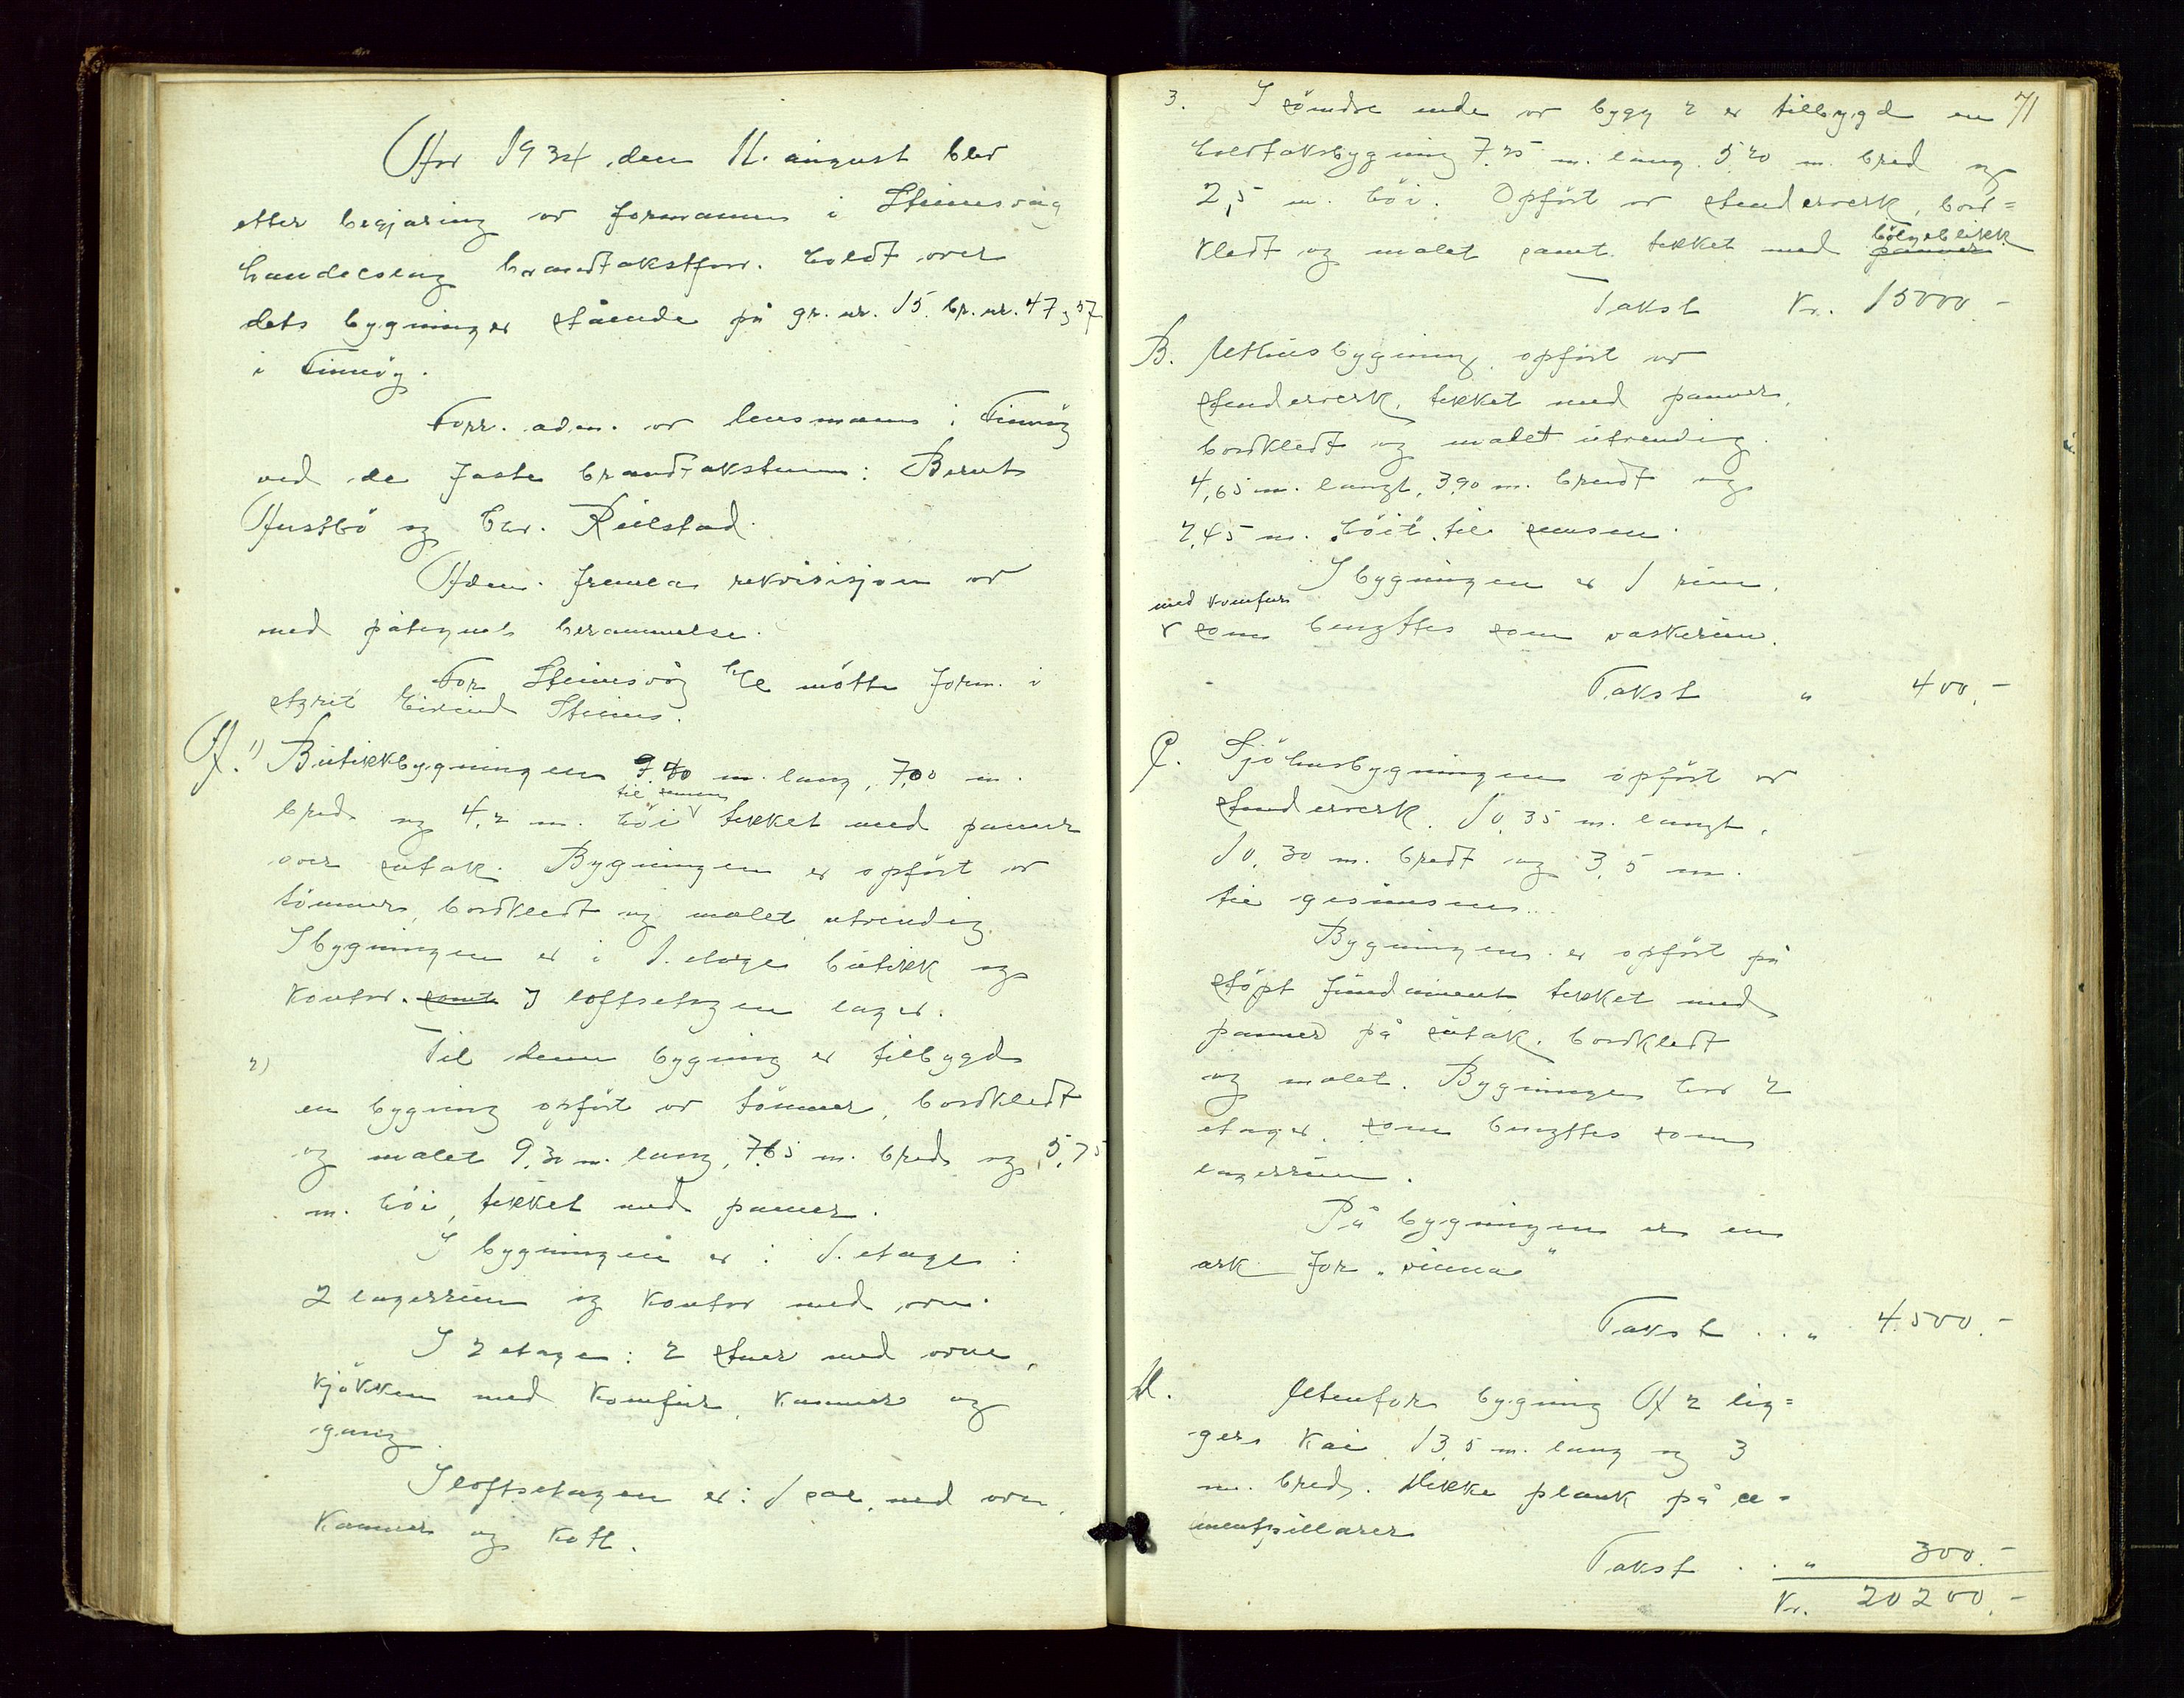 År 1934 den 11. august blev
etter begjæring av formannen i Steinsvåg
handelslag branntakstforr. holdt over
dets bygninger stående på gr. nr. 15. br. nr. 47, 57
i Finnøy.
Forr. adm. av lensmannen i Finnøy
ved de faste branntakstmenn: Bernt
Austbö og Chr. Reilstad.
Adm. fremla rekvisisjon av
med påtegnet berammelse.
For Steinsvåg H/l mötte form. i
styret Eivind Steinnes.
A. 1) Butikkbygningen 9.40 m. lang, 7,00 m.
bred og 4,2 m. höi til tekket med panner
over sutak. Bygningen er opfört av
tömmer, bordkledt og malet utvendig.
I bygningen er i 1. etage butikk og
kontor. samt I loftsetagen lager.
2) Til denne bygning er tilbygd
en bygning opfört av tömmer, bordkledt
og malet 9,30 m. lang, 7,65 m. bred og 5,75
m. höi, tekket med panner.
I bygningen er i 1. etage:
2 lagerrum og kontor med ovn.
I 2 etage: 2 stuer med ovne,
kjökken med komfur, kammer og
gang.
I loftsetagen er: 1 sal med ovn,
kammer og kott.
71
3. I söndre ende av bygg 2 er tilbygd en
halvtaksbygning 7.25 m. lang 5,20 m. bred og
2,5 m. höi. Opfört av stenderverk, bord=
kledt og malet samt tekket med panner bölgeblikk
Takst Kr. 15000.-
B. Uthusbygning opfört av
stenderverk, tekket med panner,
bordkledt og malet utvendig.
4,65 m. langt, 3,90 m. bredt og
2,45 m. höit til
I bygningen er 1 rum,
med komfur
som benyttes som vaskerum.
Takst " 400.-
C. Sjöhusbygningen opfört av
stenderverk. 10,35 m. langt,
10,30 m. bredt og 3,5 m.
til gesimsen.
Bygningen er opfört på
stöpt fundament tekket med
panner på sutak, bordkledt
og malet. Bygningen har 2
etager, som benyttes som
lagerrum.
På bygningen er en
ark for "vinna"
Takst .. " 4.500.-
D. Utenfor bygning A 2 lig=
ger kai 13,5 m. lang og 3
m. bred. Dekke plank på ce=
mentpillarer
Takst . . " 300.-
Kr. 20200.-